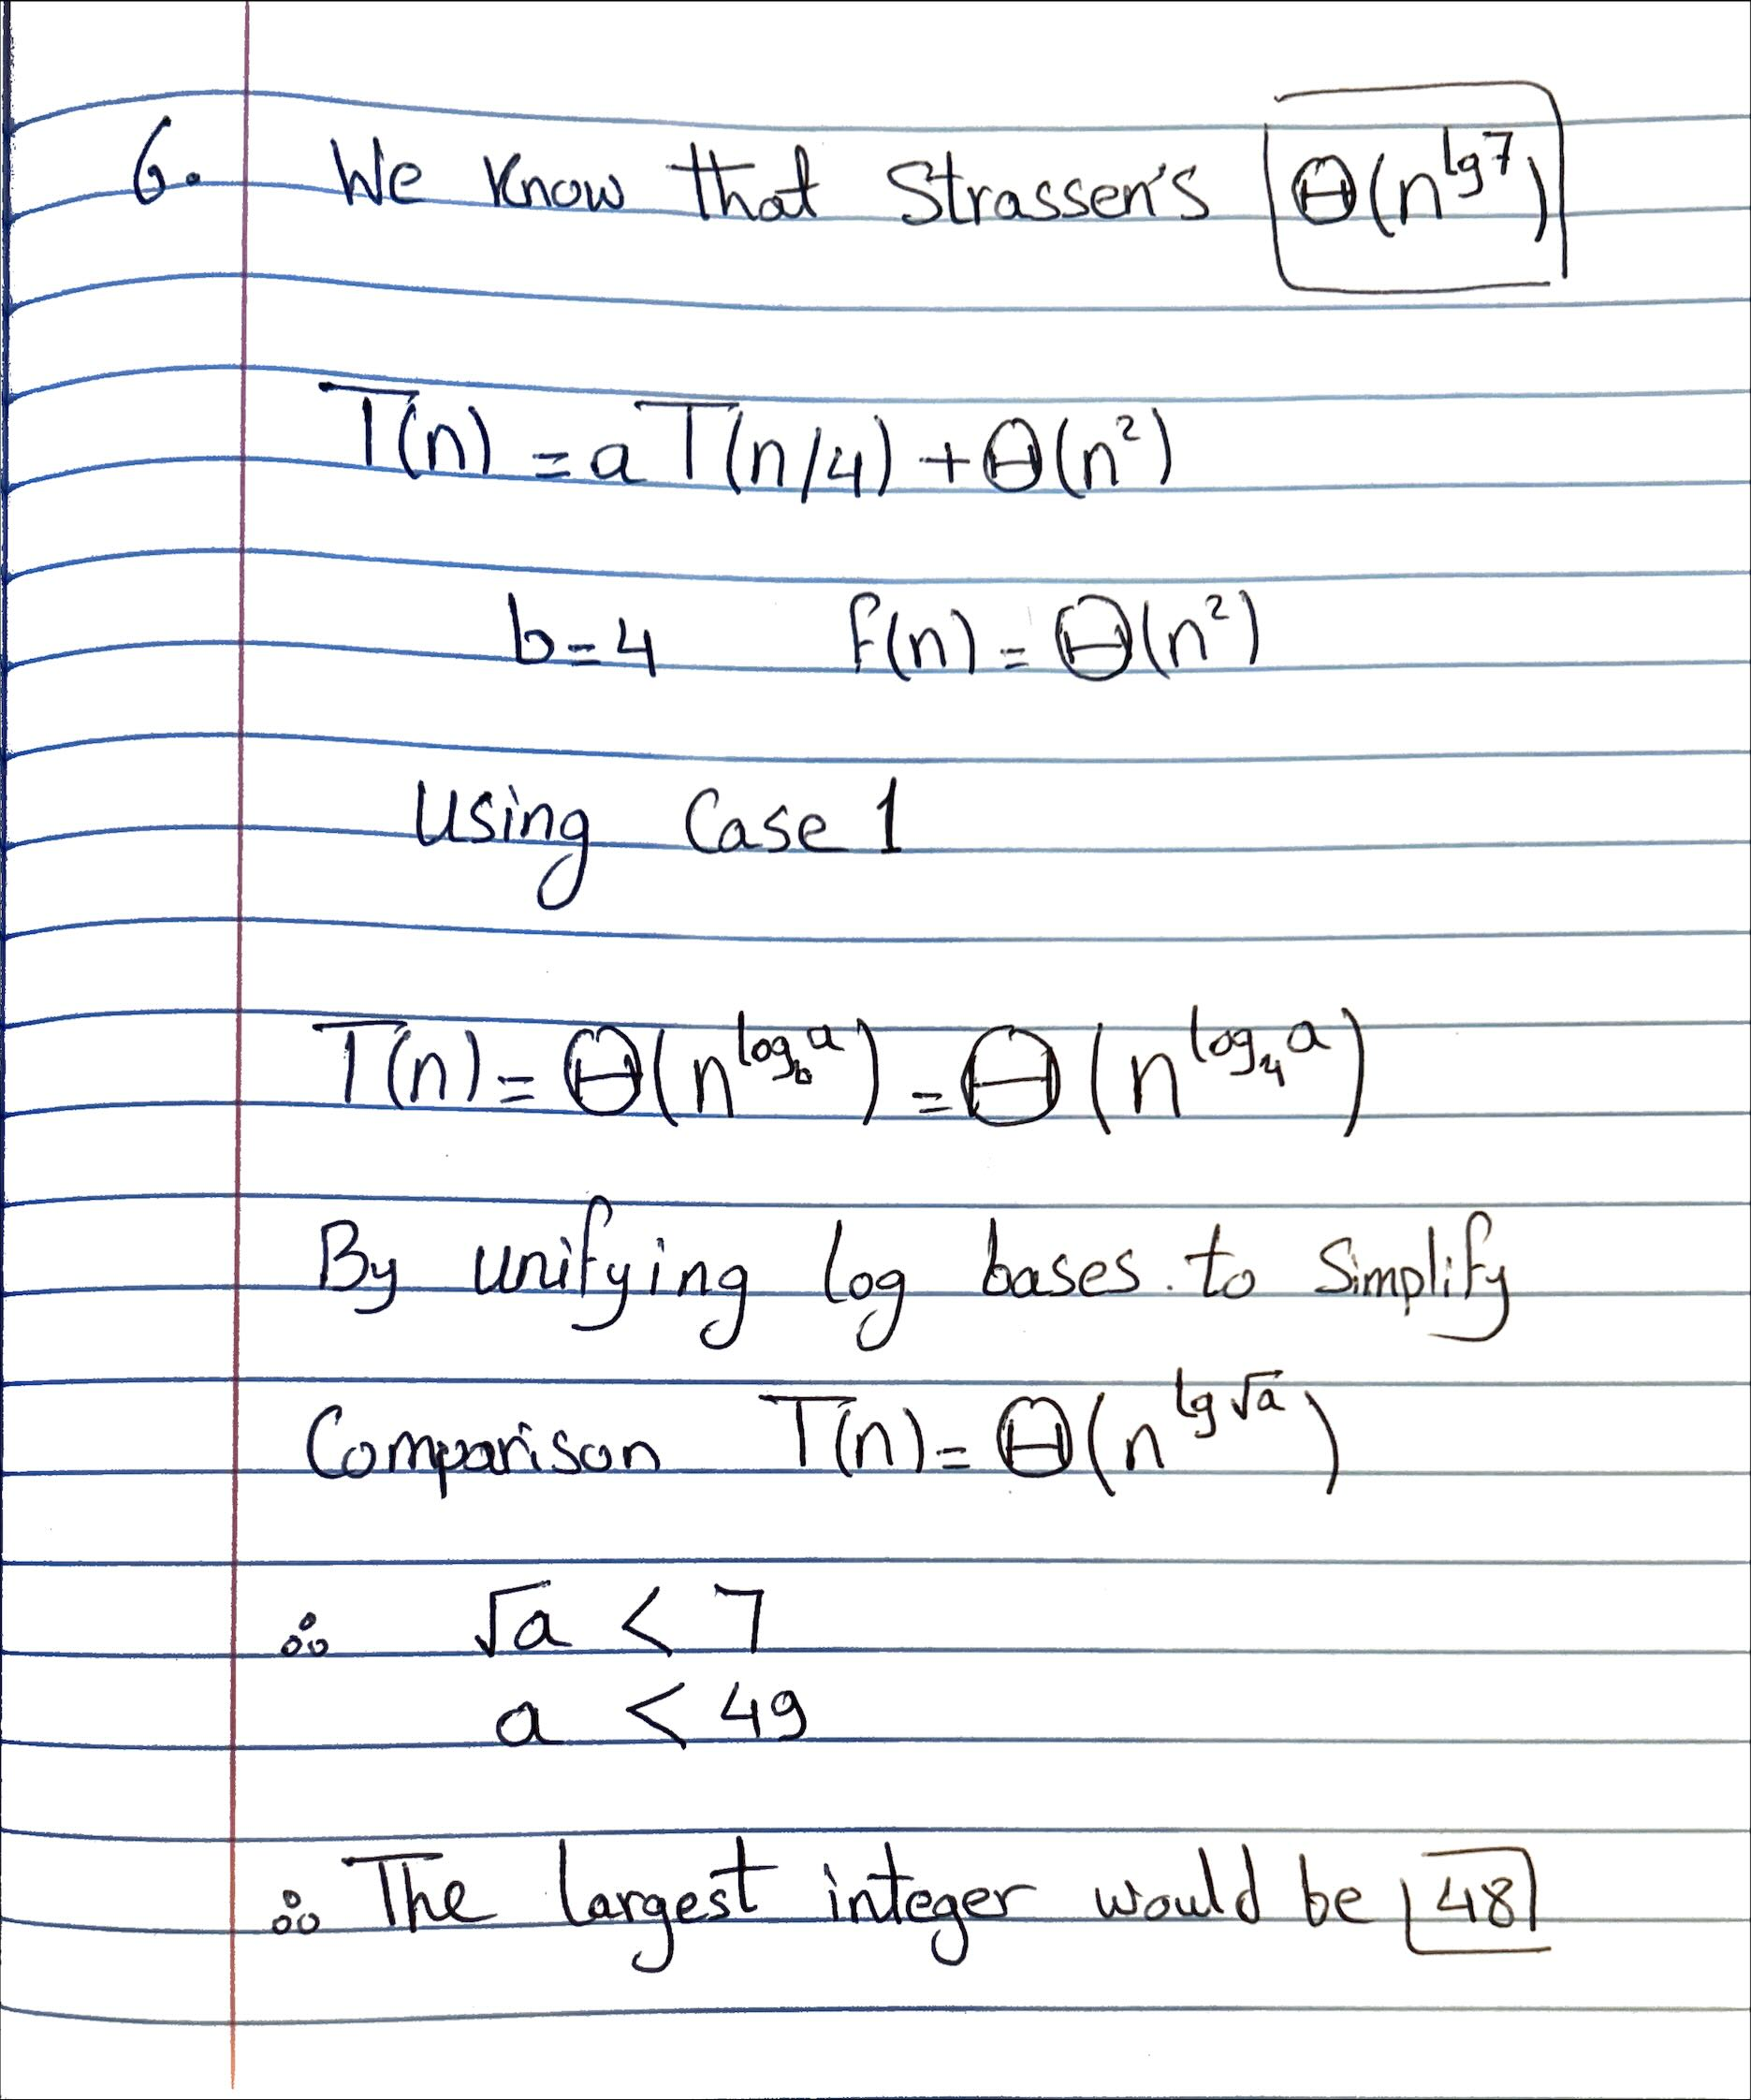 6. We know that Strassen's Θ(n^lg7)
T(n) = a T(n/4) + Θ(n²)
b=4 f(n) = Θ(n²)
Using Case 1
T(n) = Θ(n^log_b a) = Θ(n^log_4 a)
By unifying log bases. to Simplify
Comparison T(n) = Θ(n^lg√a)
∴ √a < 7
a < 49
∴ The largest integer would be 48